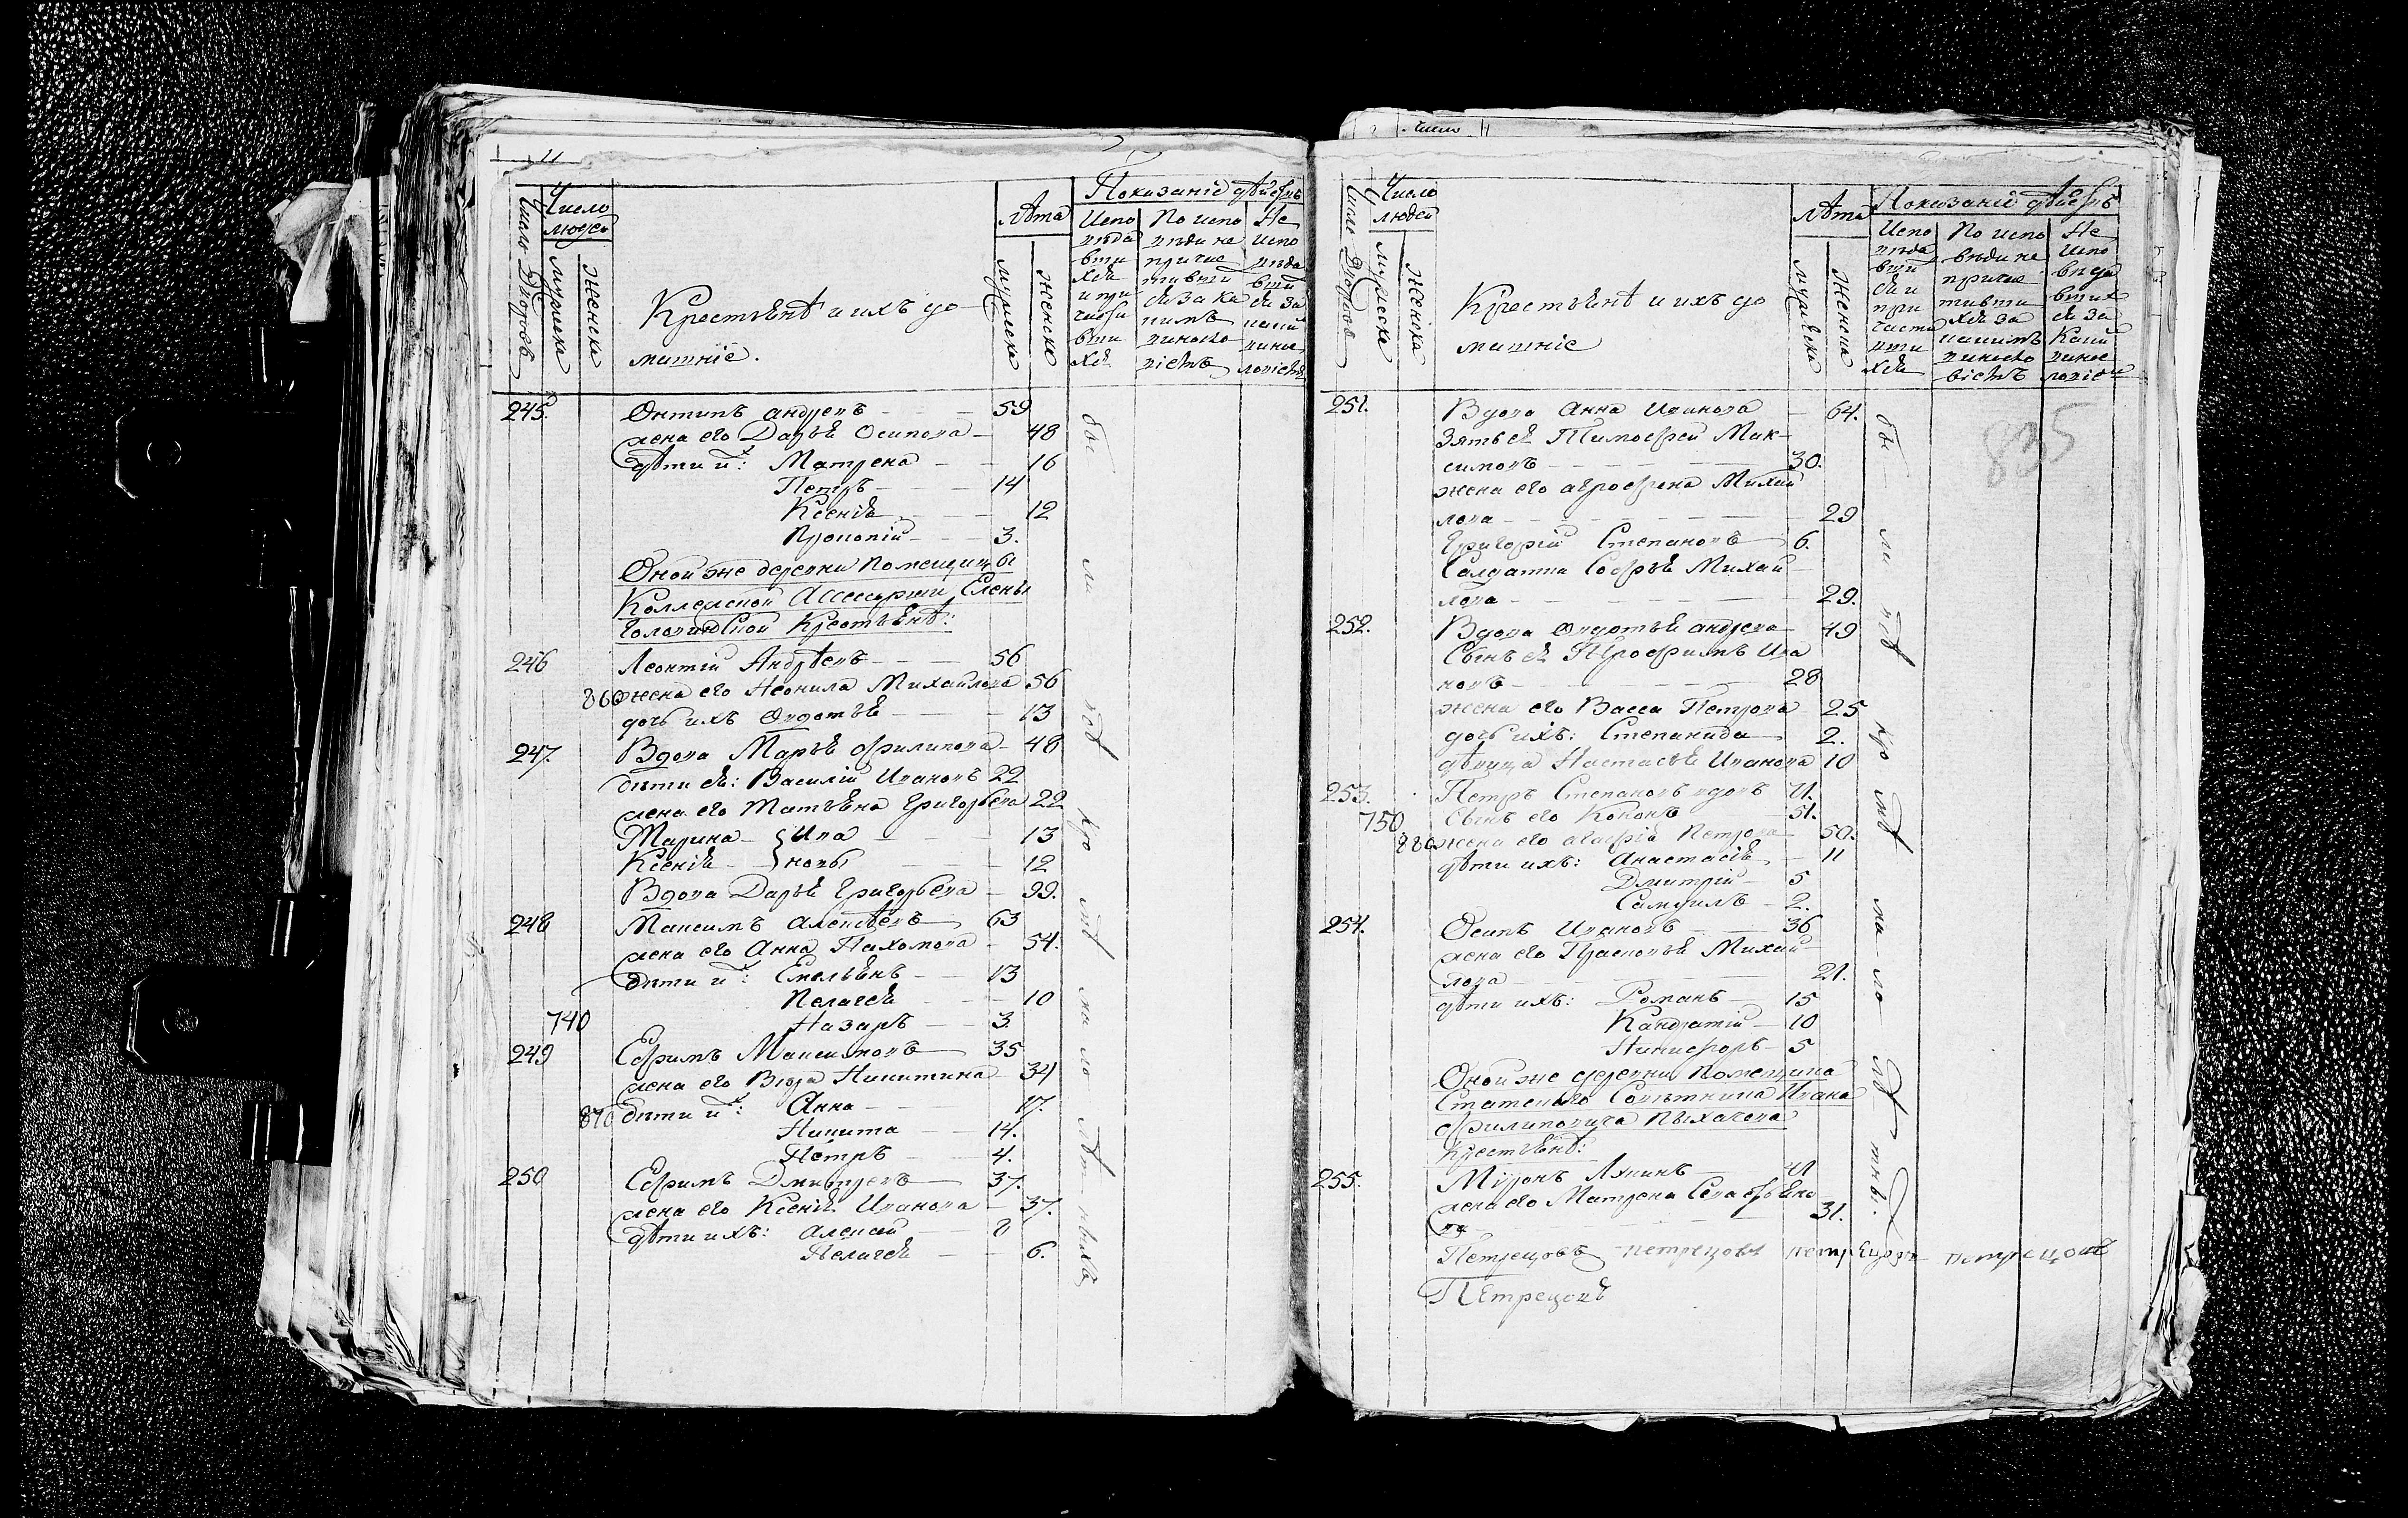 Число Дворовъ
Число людей
мужеска
женска
Крестьянѣ и ихъ до
машніе.
Лѣта
мужеска
женска
Показаніе дѣйстъ
Испо
вѣда
вши
хся
и при
части
вши
хся
По испо
вѣди не
причас
тивши
ся за ка
кимъ
виносло
віемъ
Не
испо
вѣда
вши
ся за
каки
винос
ловіемъ
245. Онтипъ андреевъ 59
жена его Дарья Осипова 48
дѣти их: Матрена 16
Петръ 14
Ксенія 12
Прокопій 3.
Оной же деревни Помещицы
Коллежской Ассесорши Елены
Крестьянѣ:
246 Леонтій Андрѣевъ 56
860 жена его Неонила Михайлова 56
дочь ихъ Овдотья 13
247. Вдова Марья Филипова 48
дѣти ея: Василій Ивановъ 22
жена его Татьяна Григорьева 22
Марина } Ива 13
Ксенія } новы 12
Вдова Дарья Григорьева 99.
248 Максимъ Алексѣевъ 63
жена его Анна Пахомова 54.
дѣти их: Емельянъ 13
Пелагея 10
740 Назаръ 3
249 Ефимъ Максимовъ 35
жена его Вера Никитина 34
870 дѣти их: Анна 17.
Никита 14.
Петръ 4.
250 Ефимъ Дмитревъ 37.
жена его Ксенія Иванова 37.
дѣти ихъ: Алексей 8
Пелагея 6.
бы ли всѣ кро мѣ ма ло лѣ
Число Дворовъ
Число людей
мужеска
женска
Крестьянѣ и ихъ до
машніе
Лѣта
мужеска
женска
Показаній дѣйстъ
Испо
вѣда
вши
ся и
при
части
вши
хся
По испо
вѣди не
причас
тивши
хся за
какимъ
виносло
віемъ
Не
испо
вѣда
вших
ся за
каки
винос
ловіем
835
251. Вдова Анна Иванова 64.
Зять ея Тимофей Мак-
симовъ 30.
жена его Афросина Михай
лова 29
Григорій Степановъ 6.
Салдатка Софья Михай
лова 29.
252. Вдова Овдотья андреева 49
Сынъ ея Трофимъ Ива
новъ 28
жена его Васса Петрова 25
дочь ихъ: Степанида 2.
дѣвица Настасья Иванова 10
253. Петръ Степановъ вдовъ 71.
750 Сынъ его Кононъ 51.
880 жена его агафія Петрова 50.
дѣти ихъ: Анастасія 11
Дмитрій 5
Самуилъ 2.
254. Осипъ Ивановъ 36
жена его Прасковья Михай
лова 21.
дѣти ихъ: Романъ 15
Кандратій 10
Никифоръ 5
Оной же деревни Помещика
Статскаго Советника Ивана
Филиповича Пыхачева
Крестьянѣ:
255. Миронъ
жена его Матрена Севастьяно
ва 31.
бы ли всѣ кро мѣ ма ло лѣ тны.
Петрецовъ петрецовъ петрецовъ петрецовъ
Петрецовъ